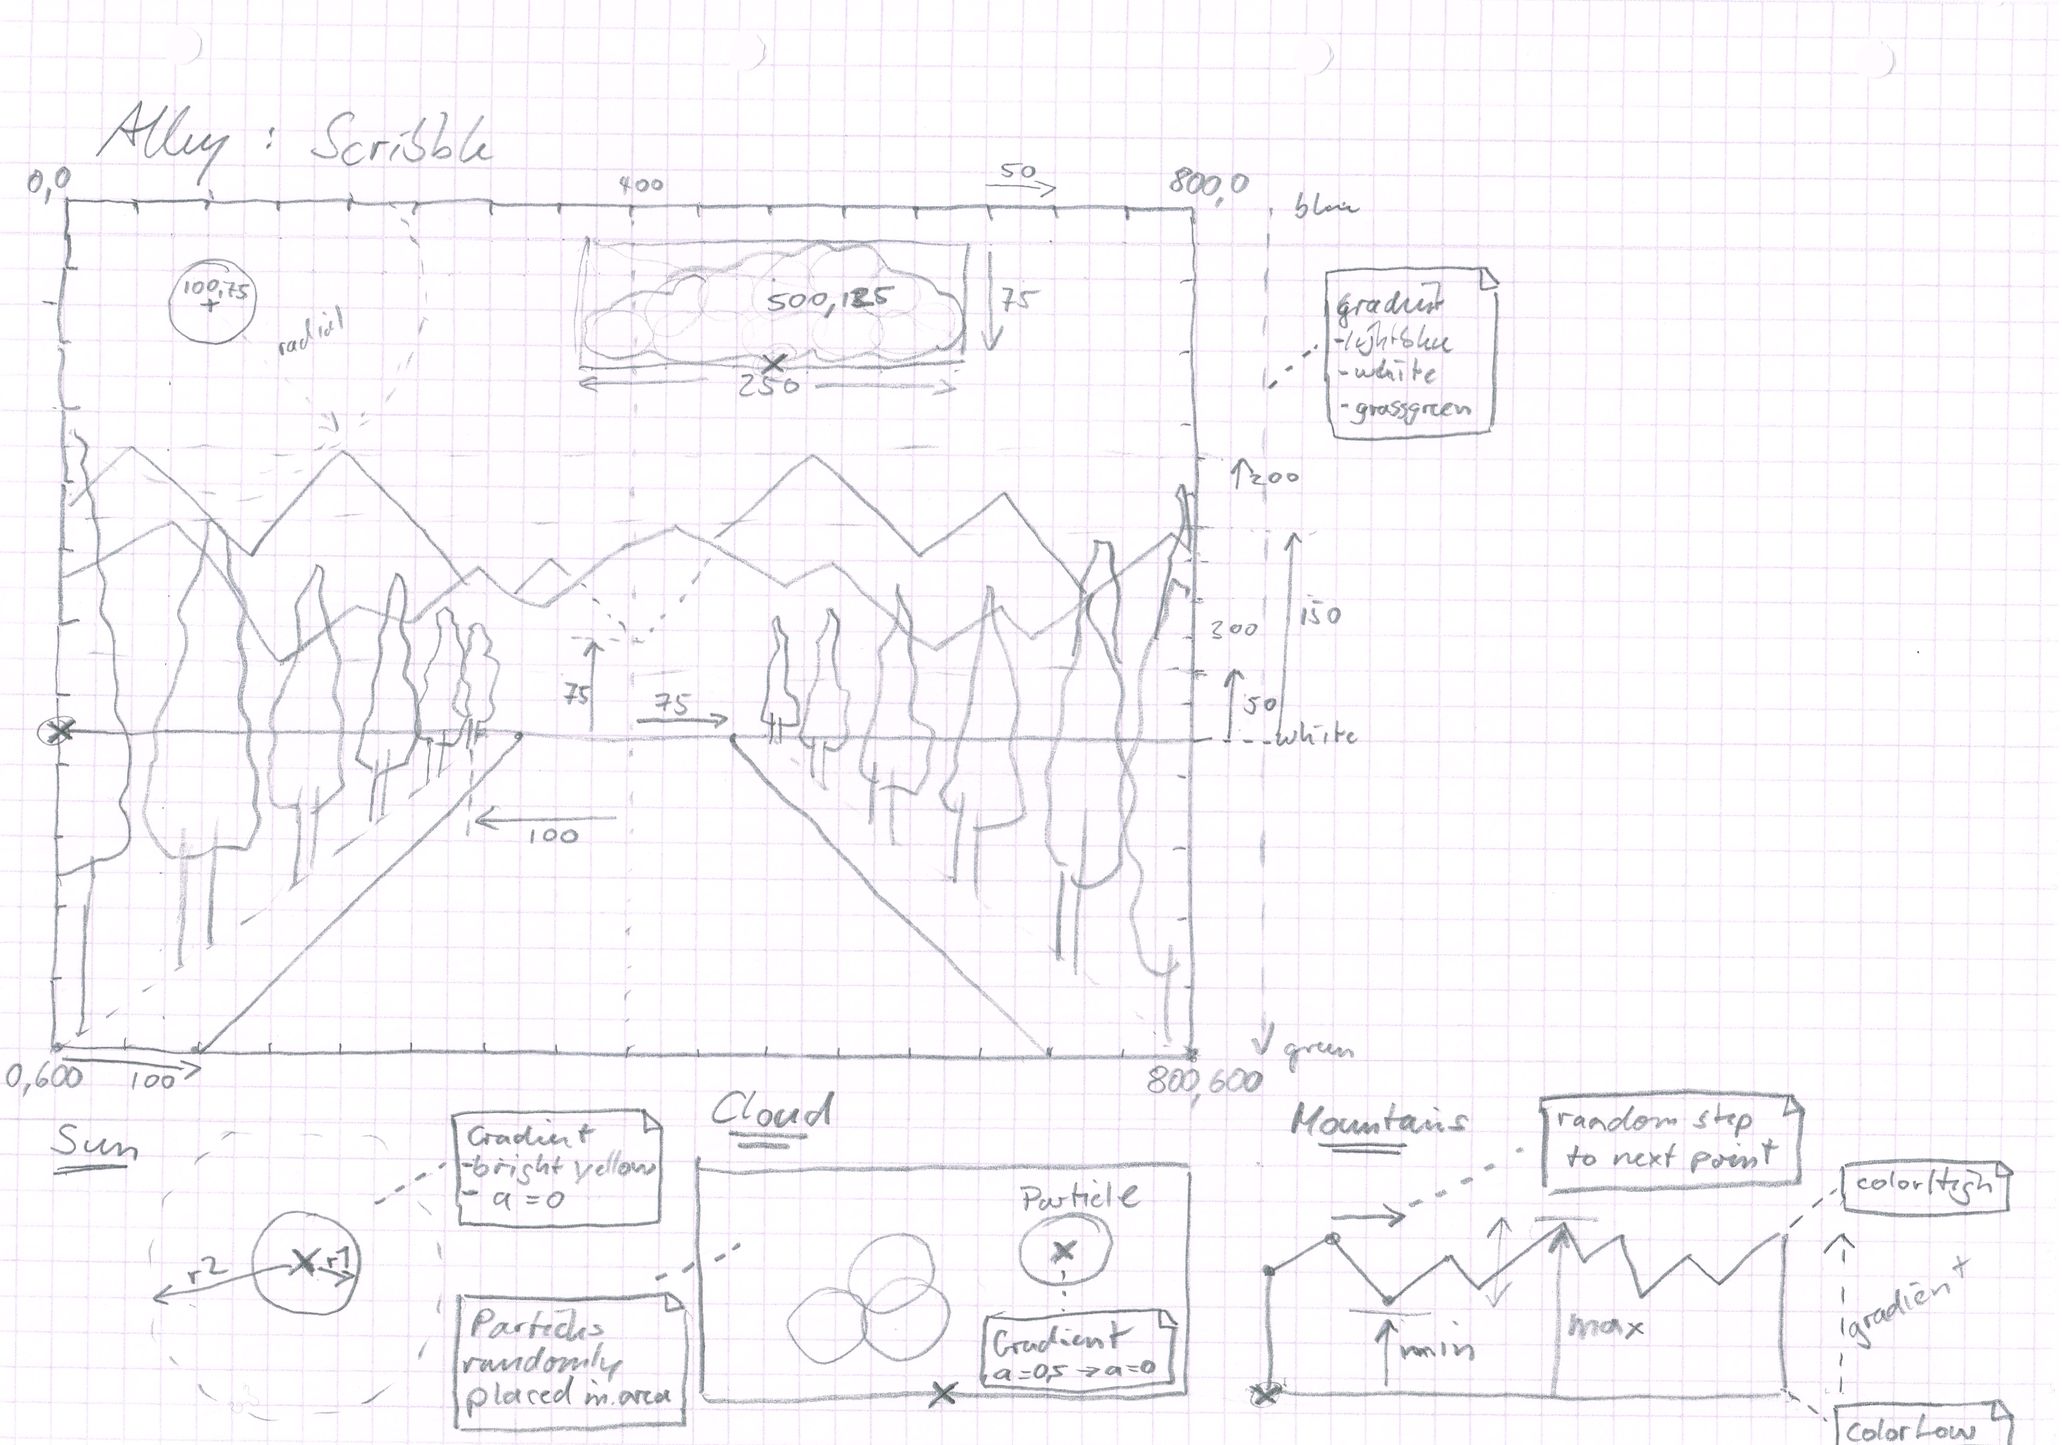 Alley : Scribble
0,0
400
50
800,0
blue
100,75
radial
500,125
75
250
gradient
-lightblue
-white
-grassgreen
200
150
300
50
white
75
75
100
0,600
100
800,600
green
Sun
r2
r1
Gradient
-bright yellow
- a=0
Cloud
Particle
Gradient
a=0,5 → a=0
Particles
randomly
placed in area
Mountains
random step
to next point
colorHigh
min
max
gradient
colorLow